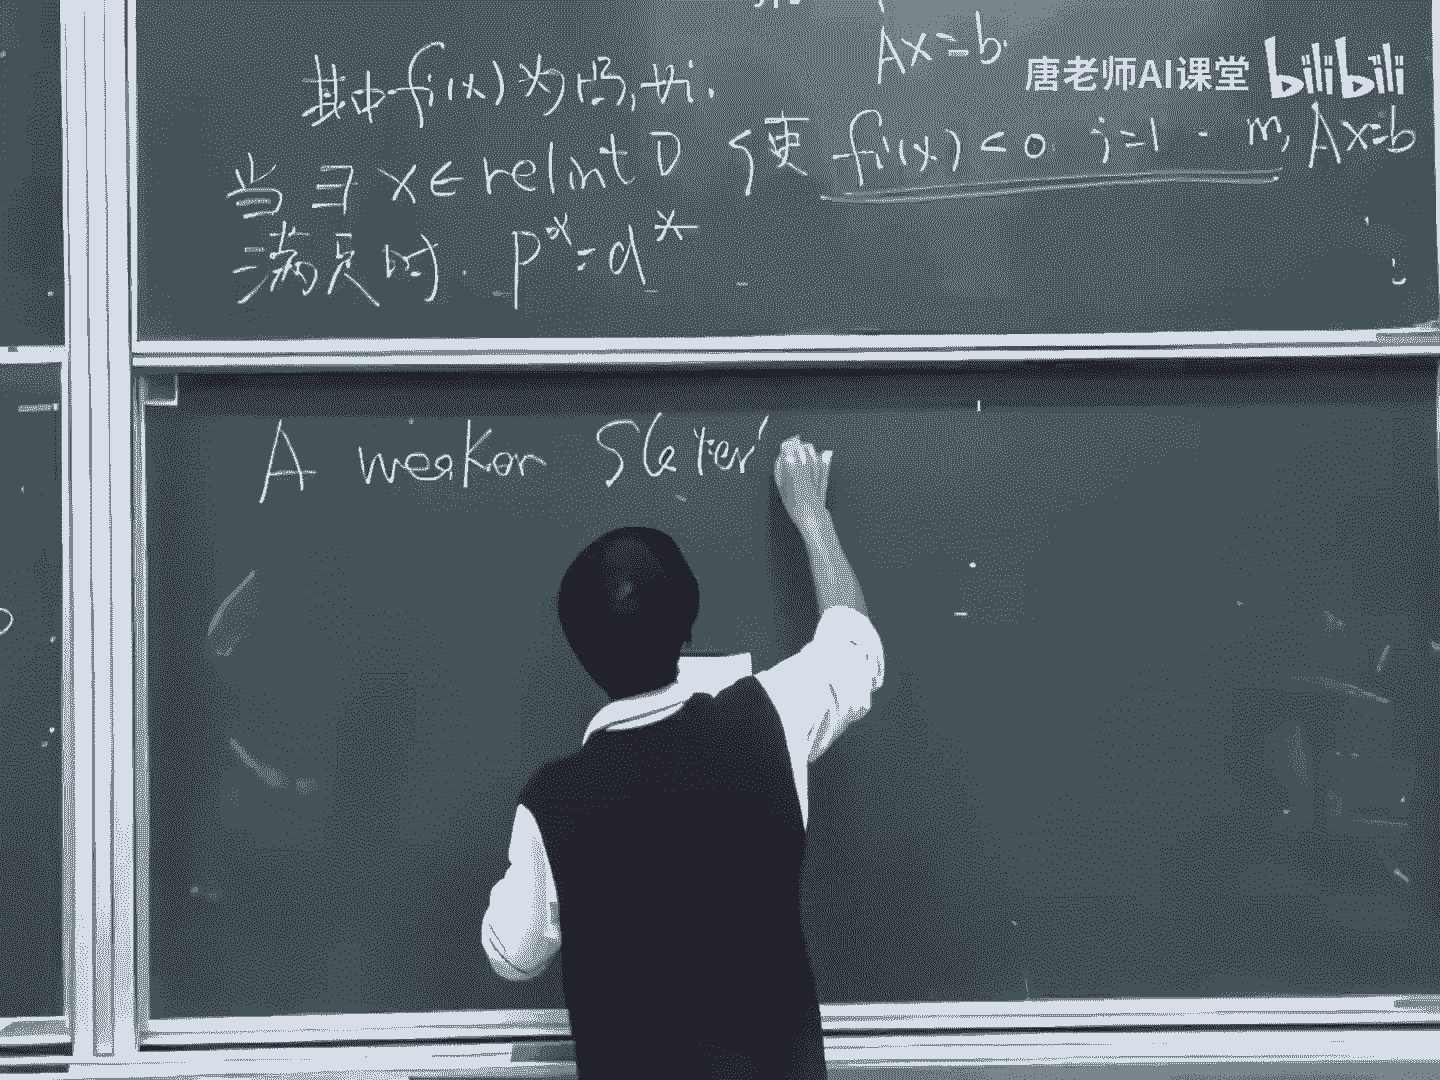 Ax=b.
唐老师AI课堂 bilibili
其中fi(x)为凸,∀i.
当∃x∈relint D 使 fi(x)<0 i=1 - m, Ax=b
满足时. p*=d*
A weaker Slater'